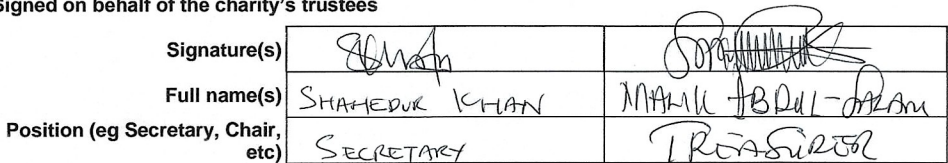 Signed on behalf of the charity's trustees
Signature(s)
Full name(s) SHAHEDUR KHAN MALIK ABDUL-SALAM
Position (eg Secretary, Chair, etc) SECRETARY TREASURER